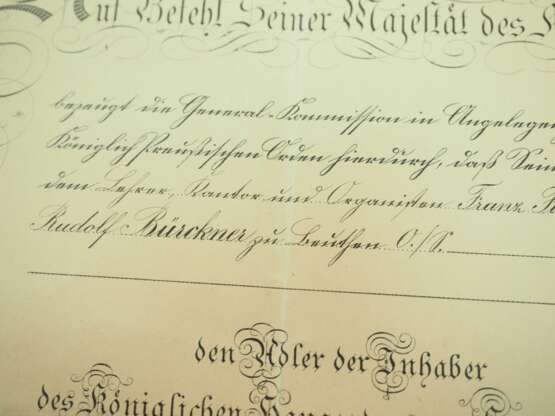 Auf Befehl Seiner Majestät des
bezeugt die General-Kommission in
Königlich Preußischen Orden hierdurch, daß
dem Lehrer, Kantor und Organisten Franz
Rudolf Bürckner zu Beuthen O./S.
den Adler der Inhaber
des Königlichen